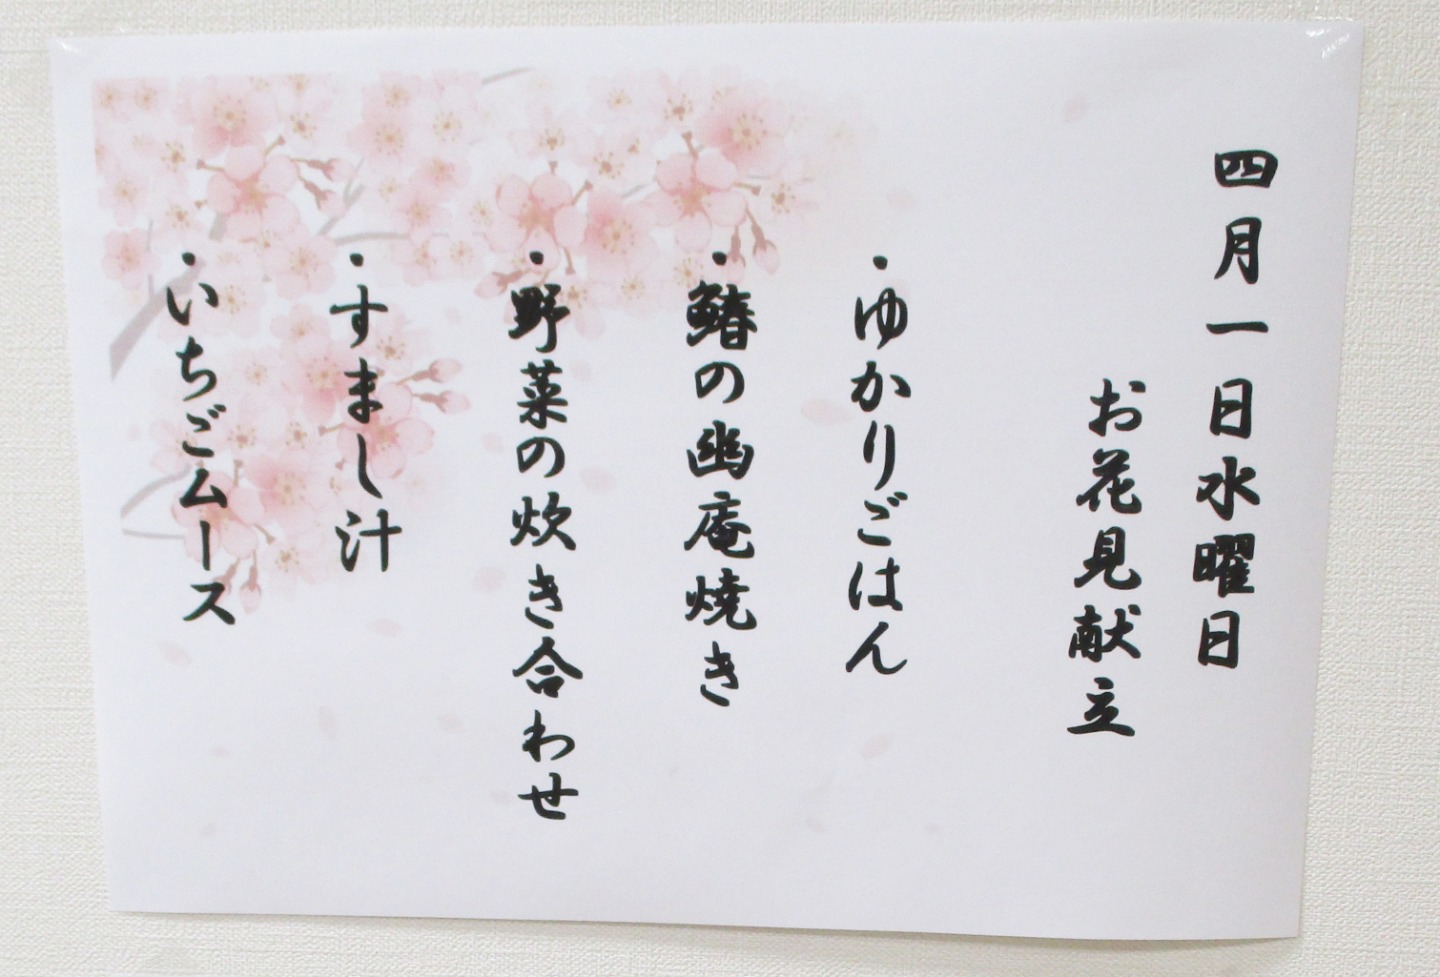 四月一日水曜日
お花見献立
・ゆかりごはん
・鰆の幽庵焼き
・野菜の炊き合わせ
・すまし汁
・いちごムース